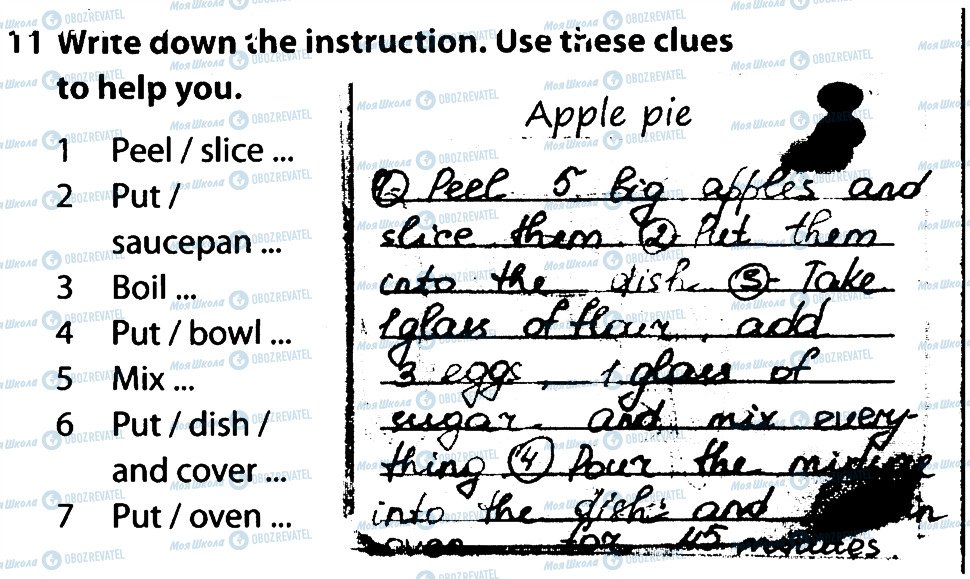 11 Write down the instruction. Use these clues
to help you.
1 Peel / slice ...
2 Put /
saucepan ...
3 Boil ...
4 Put / bowl ...
5 Mix ...
6 Put / dish /
and cover ...
7 Put / oven ...
Apple pie
① Peel 5 big apples and
slice them. ② Put them
into the dish ③ Take
1 glass of flour, add
3 eggs, 1 glass of
sugar and mix every-
thing ④ Pour the mixture
into the dish and
oven for 45 minutes.